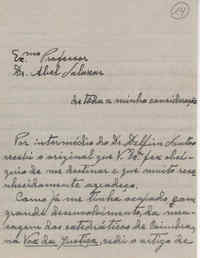 14
Ex.mo Professor
Dr. Abel Salazar
de toda a minha consideração
Por intermédio do Dr. Delfim Santos
recebi o original que V. Ex.ª fez obsé-
quio de me destinar e que muito reco-
nhecidamente agradeço.
Como já me tinha ocupado, com
grande desenvolvimento, da men-
sagem dos catedráticos de Coimbra,
na Voz da Justiça, cedi o artigo de